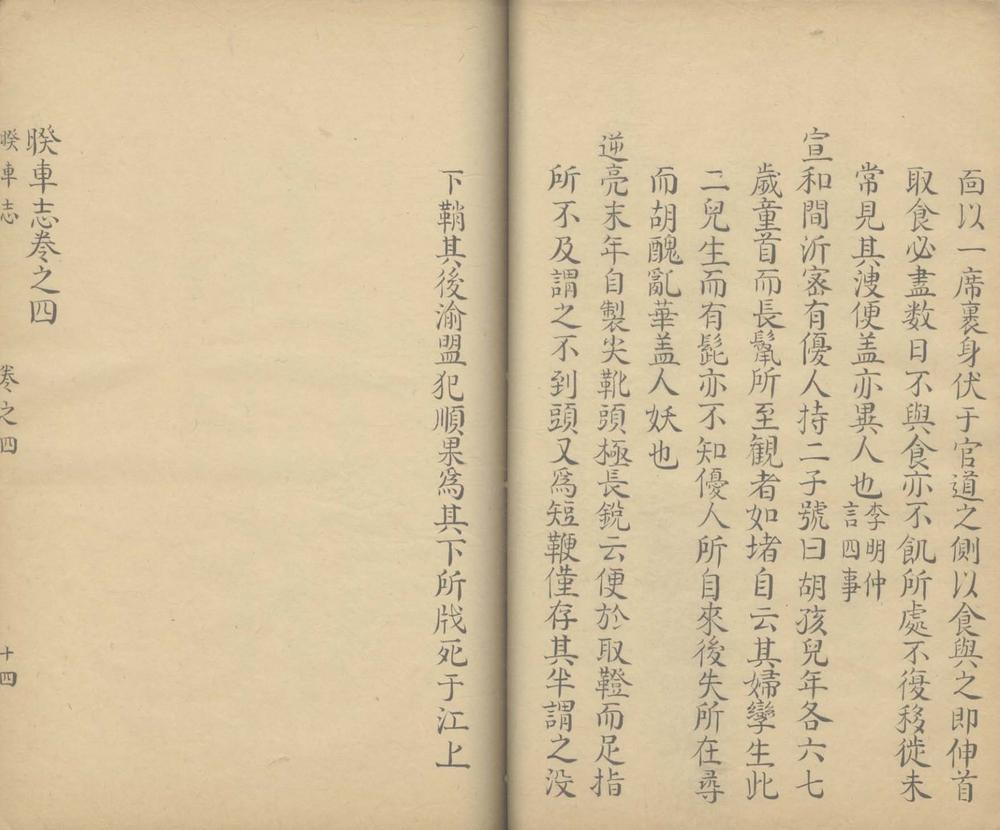 面以一席裹身伏于官道之側以食與之即伸首
取食必盡数日不與食亦不飢所處不復移徙未
常見其溲便盖亦異人也李明仲
言四事
宣和間沂宻有優人持二子號曰胡孩兒年各六七
歲童首而長鬣所至觀者如堵自云其婦孿生此
二兒生而有髭亦不知優人所自來後失所在尋
而胡醜亂華盖人妖也
逆亮末年自製尖靴頭極長銳云便於取鞾而足指
所不及謂之不到頭又爲短鞭僅存其半謂之没
下鞘其後渝盟犯順果爲其下所戕死于江上
睽車志卷之四
睽車志 卷之四 十四